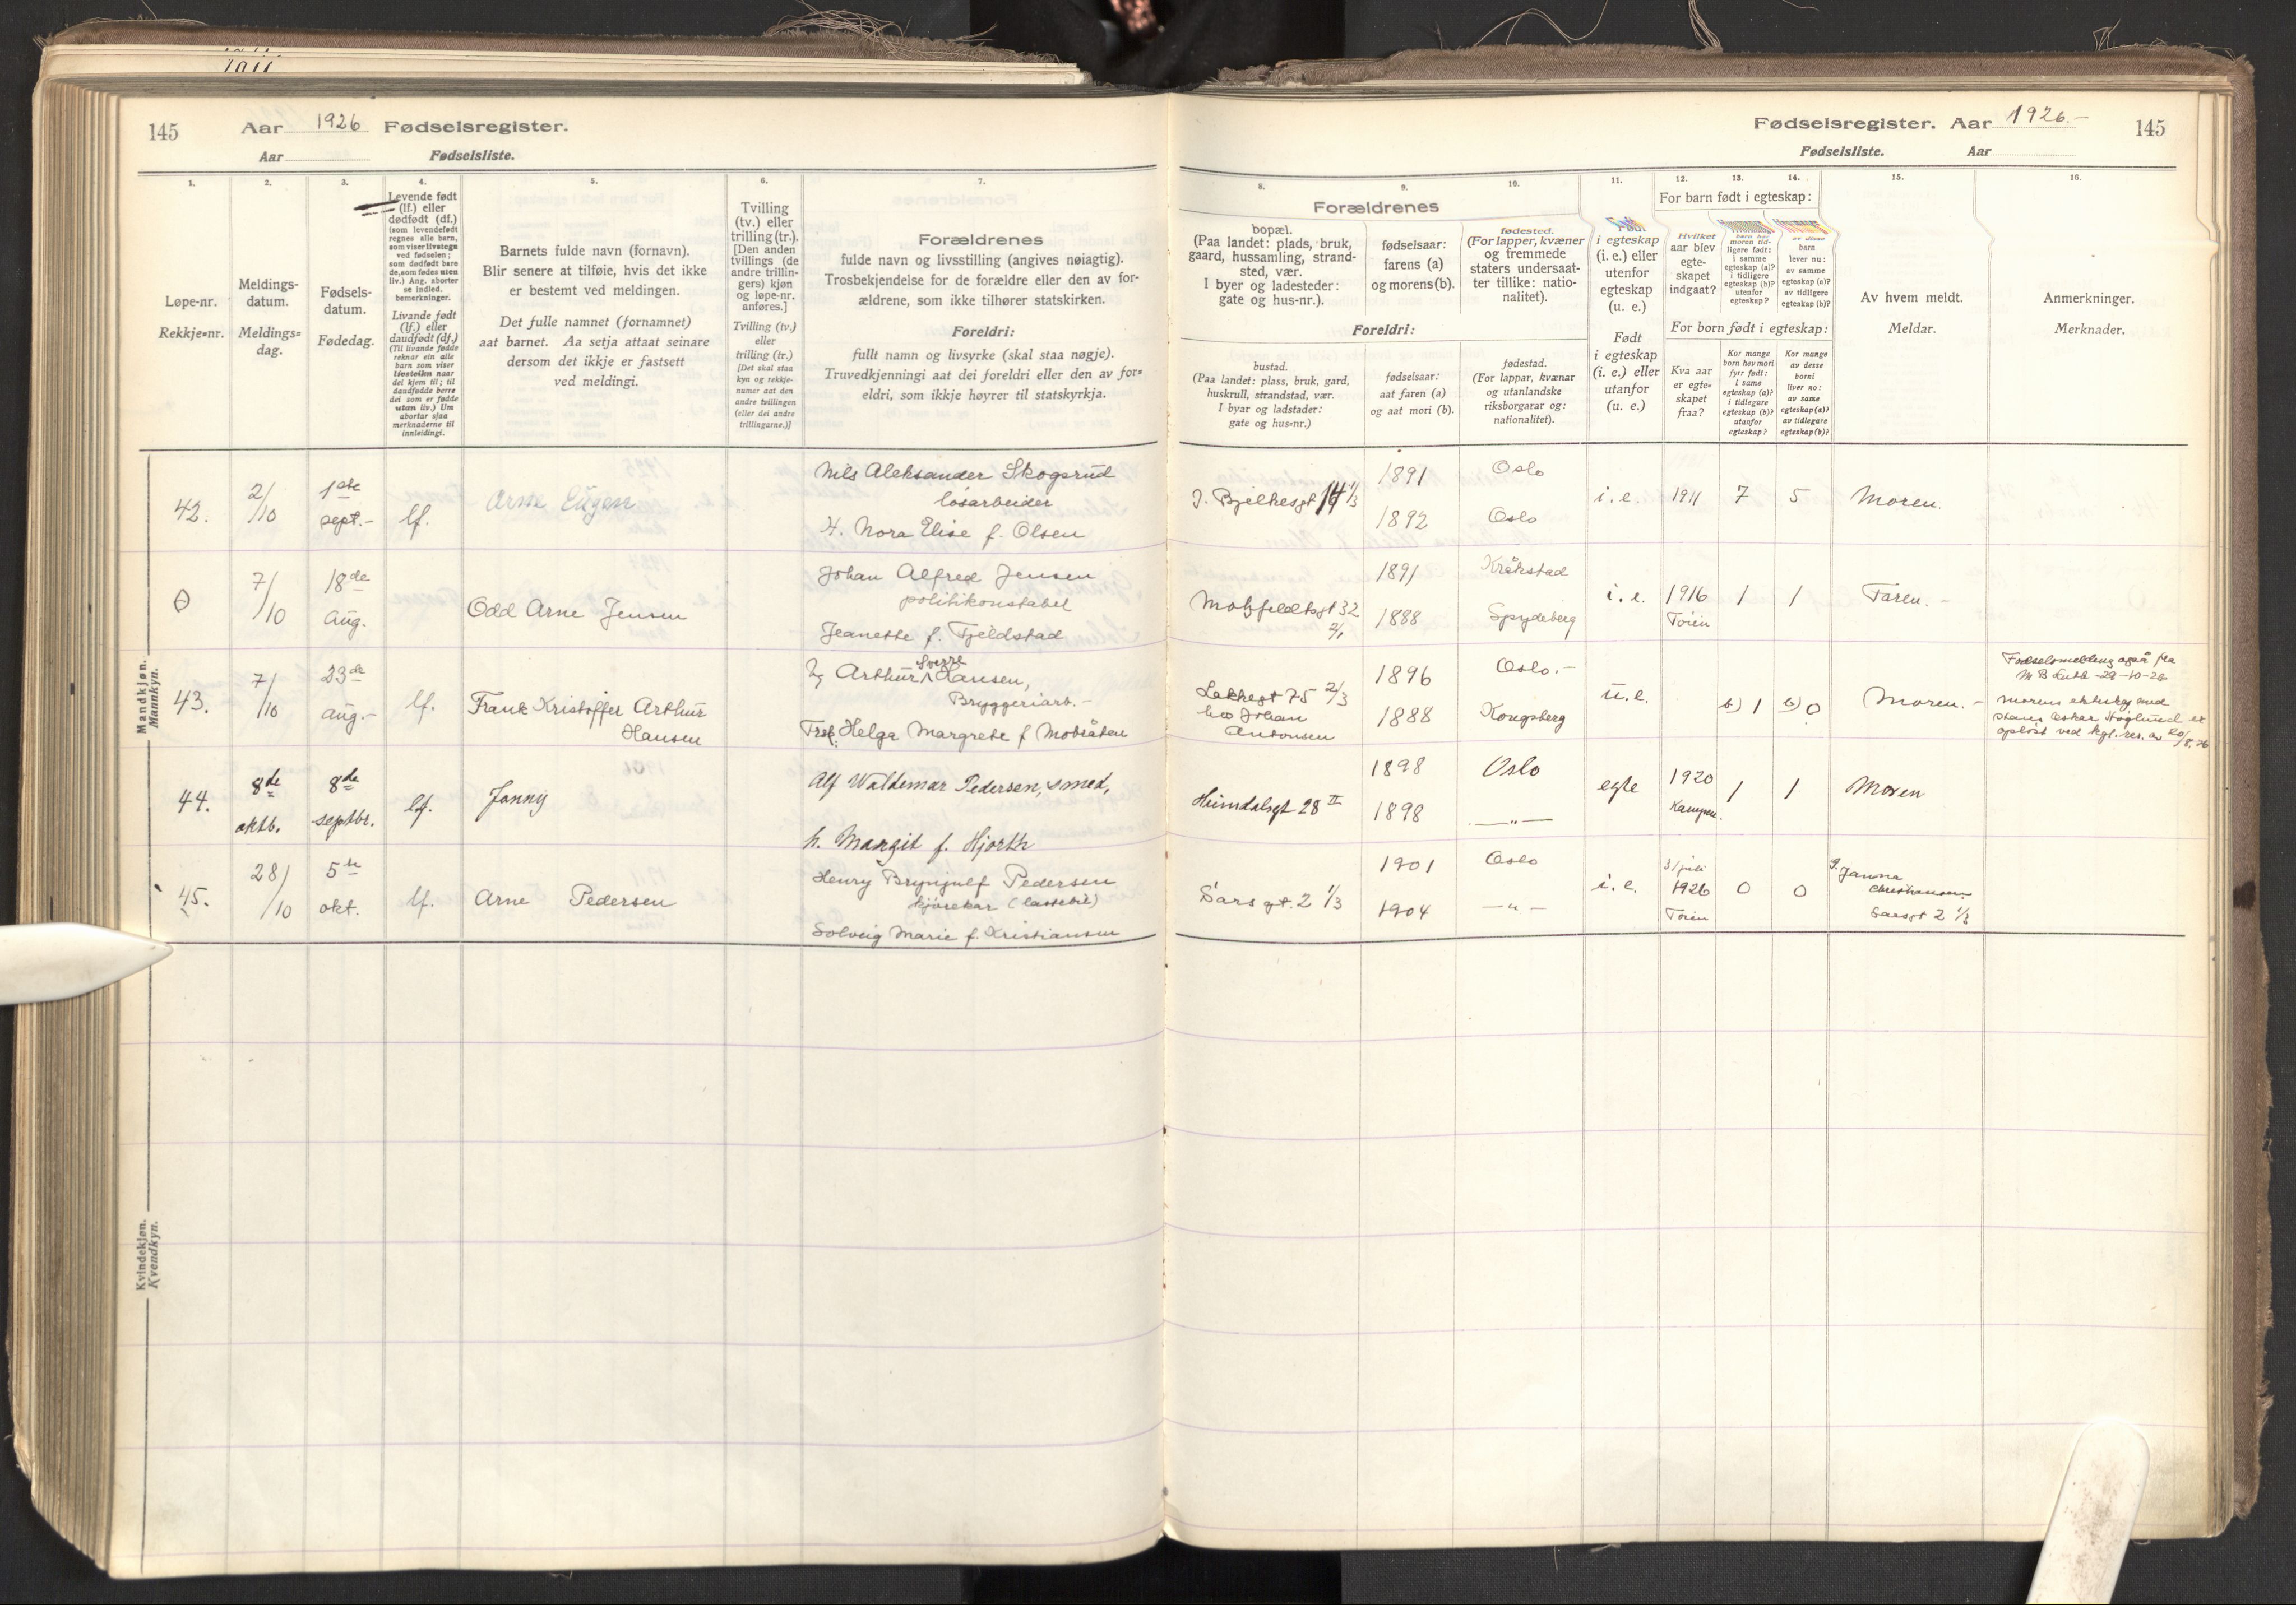 145 Aar 1926 Fødselsregister.
Aar Fødselsliste.
Fødselsregister. Aar 1926.- 145
Fødselsliste. Aar
1. 2. 3. 4. 5. 6. 7.
Løpe-nr.
Rekkje-nr.
Meldings-
datum.
Meldings-
dag.
Fødsels-
datum.
Fødedag.
Levende født
(lf.) eller
dødfødt (df.)
(som levendefødt
regnes alle barn,
som viser livstegn
ved fødselen;
som dødfødt bare
de, som fødes uten
liv.) Ang. aborter
se indled.
bemerkninger.
Livande født
(lf.) eller
daudfødt (df.)
(Til livande fødde
reknar ein alle
barn som viser
livsteikn naar
dei kjem til; til
daudfødde berre
dei som er fødde
utan liv.) Um
abortar sjaa
merknaderne til
innleidingi.
Barnets fulde navn (fornavn).
Blir senere at tilføie, hvis det ikke
er bestemt ved meldingen.
Det fulle namnet (fornamnet)
aat barnet. Aa setja attaat seinare
dersom det ikkje er fastsett
ved meldingi.
Tvilling
(tv.) eller
trilling (tr.).
[Den anden
tvillings (de
andre trillin-
gers) kjøn
og løpe-nr.
anføres.]
Tvilling (tv.)
eller
trilling (tr.)
[Det skal staa
kyn og rekkje-
numer aat den
andre tvillingen
(eller dei andre
trillingarne.)]
Forældrenes
fulde navn og livsstilling (angives nøiagtig).
Trosbekjendelse for de forældre eller den av for-
ældrene, som ikke tilhører statskirken.
Foreldri:
fullt namn og livsyrke (skal staa nøgje).
Truvedkjenningi aat dei foreldri eller den av for-
eldri, som ikkje høyrer til statskyrkja.
8. 9. 10. 11. 12. 13. 14. 15. 16.
Forældrenes
bopæl.
(Paa landet: plads, bruk,
gaard, hussamling, strand-
sted, vær.
I byer og ladesteder:
gate og hus-nr.).
fødselsaar:
farens (a)
og morens (b).
fødested.
(For lapper, kvæner
og fremmede
staters undersaat-
ter tillike: natio-
nalitet).
Foreldri:
bustad.
(Paa landet: plass, bruk, gard,
huskrull, strandstad, vær.
I byar og ladstader:
gate og hus-nr.)
fødselsaar:
aat faren (a)
og aat mori (b).
fødestad.
(For lappar, kvænar
og utanlandske
riksborgarar og:
nationalitet).
Født
i egteskap
(i. e.) eller
utenfor
egteskap
(u. e.)
Født
i egteskap
(i. e.) eller
utanfor
(u. e.)
For barn født i egteskap:
Hvilket
aar blev
egte-
skapet
indgaat?
barn har
moren tid-
ligere født:
i samme
egteskap (a)?
i tidligere
egteskap (b)?
utenfor
egteskap?
av disse
barn
lever nu:
av samme
egteskap (a)?
av tidligere
egteskap (b)?
For born født i egteskap:
Kva aar
er egte-
skapet
fraa?
Kor mange
born hev mori
fyrr født:
i same
egteskap (a)?
i tidlegare
egteskap (b)?
utanfor
egteskap?
Kor mange
av desse
borni
liver no:
av same
egteskap (a)?
av tidlegare
egteskap (b)?
Av hvem meldt.
Meldar.
Anmerkninger.
Merknader.
Mandkjøn.
Mannkyn.
42. 2/10 1ste sept.- lf. Arne Eugen
Nils Aleksander Skogsrud
løsarbeider
H. Nora Elise f. Olsen
J. Bjelkesgt 14 1/3 1891 Oslo
1892 Oslo
i. e. 1911 7 5 Moren.
0 7/10 18de aug. Odd Arne Jensen
Johan Alfred Jensen
politikonstabel
Jeanette f. Fjeldstad
Motzfeldtsgt 32
2/1
1891 Kråkstad
1888 Spydeberg
i. e. 1916 1 1 Faren.-
Tøien
43. 7/10 23de aug.- lf. Frank Kristoffer Arthur
Hansen
Arthur Sverre Hansen,
Bryggeriarb.-
Helga Margrete f
Lakkegt 75 2/3
hos Johan
Antonsen
1896 Oslo.-
1888 Kongsberg
u. e. b) 1 b) 0 Moren.-
Fødselsmelding også fra
-29-10-26
morens ekteskap med
Oskar Høglund er
opløst ved kgl. res. av 20/8. 26
44. 8de oktb. 8de septbr. lf. Jonny
Alf Waldemar Pedersen, smed,
h. Margit f. Hjorth
Heimdalsgt 28 II 1898 Oslo
1898 — " —
egte 1920 1 1 Moren
Kampen.
45. 28/10 5te okt. lf. Arne Pedersen
Henry Brynjulf Pedersen
kjørekar (lastebil)
Solveig Marie f. Kristiansen
Sars gt. 2 1/3 1901 Oslo
1904 — " —
i. e. 31 juli
1926 0 0
Tøien
J. Janna
Christiansen
Sarsgt 2 1/3
Kvindekjøn.
Kvendkyn.